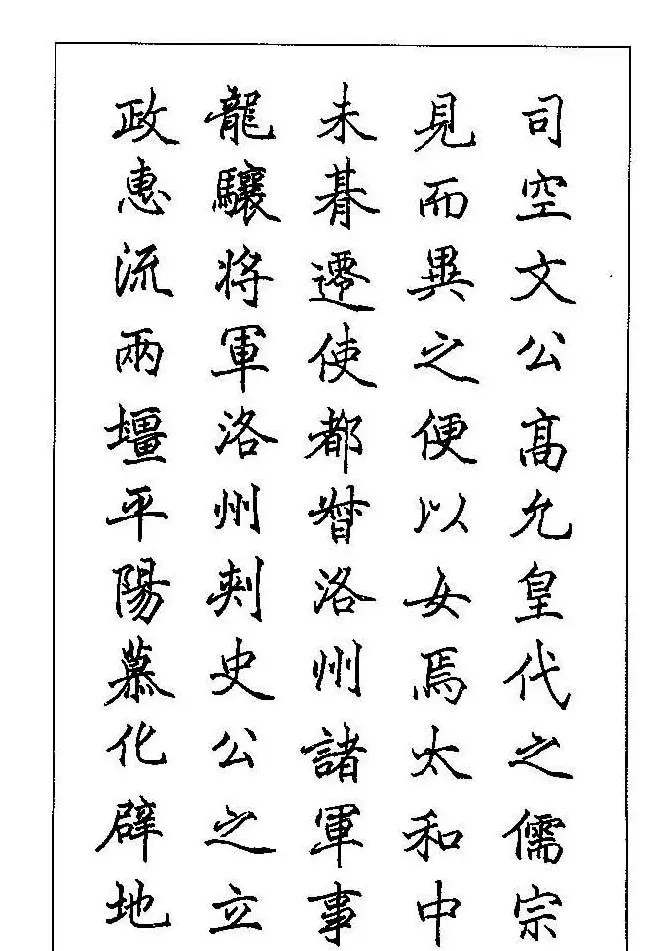 司空文公高允皇代之儒宗
見而異之便以女焉太和中
未朞遷使都督洛州諸軍事
龍驤將軍洛州刾史公之立
政惠流兩壃平陽慕化辟地